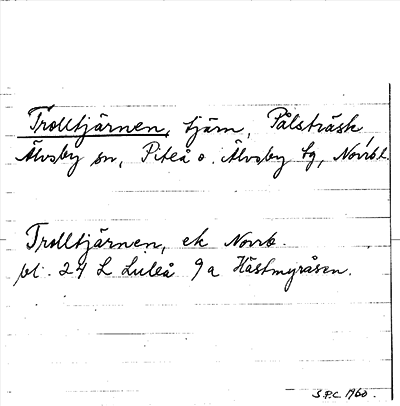 Trolltjärnen, tjärn, Pålsträsk,
Älvsby sn, Piteå o. Älvsby tg, Norrb.l.
Trolltjärnen, ek Norrb.
bl. 24 L Luleå 9 a Hästmyråsen.
S.P.C. 1960.